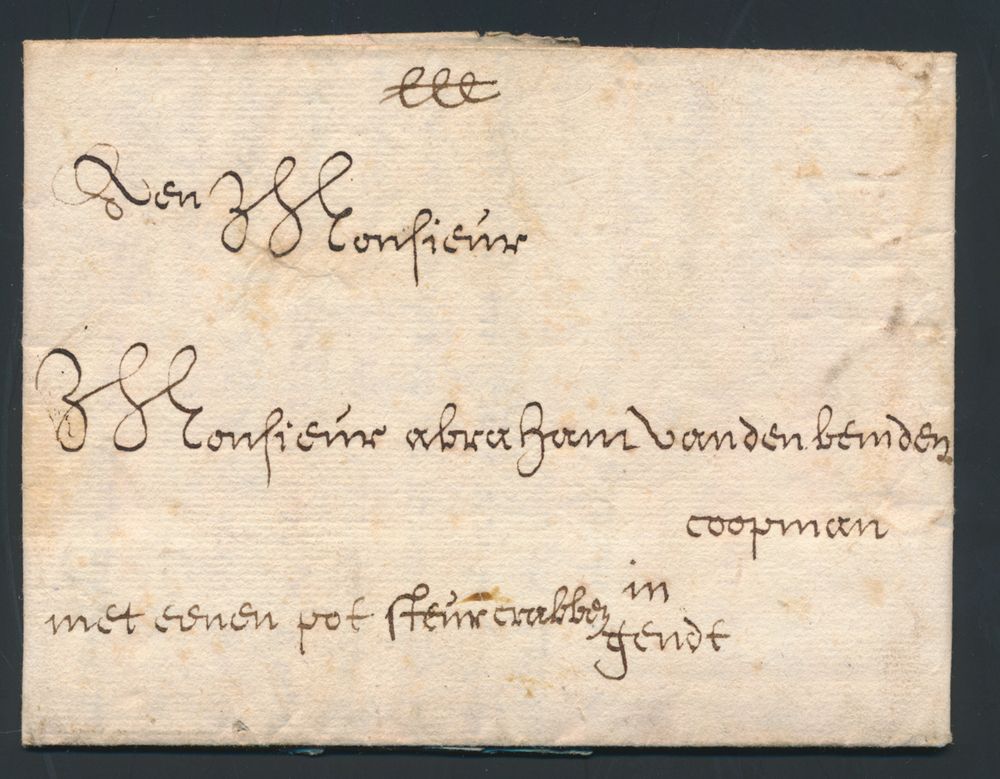 Aen Monsieur
Monsieur abraham vanden bemden
coopman
in
met eenen pot steurcrabben
gendt